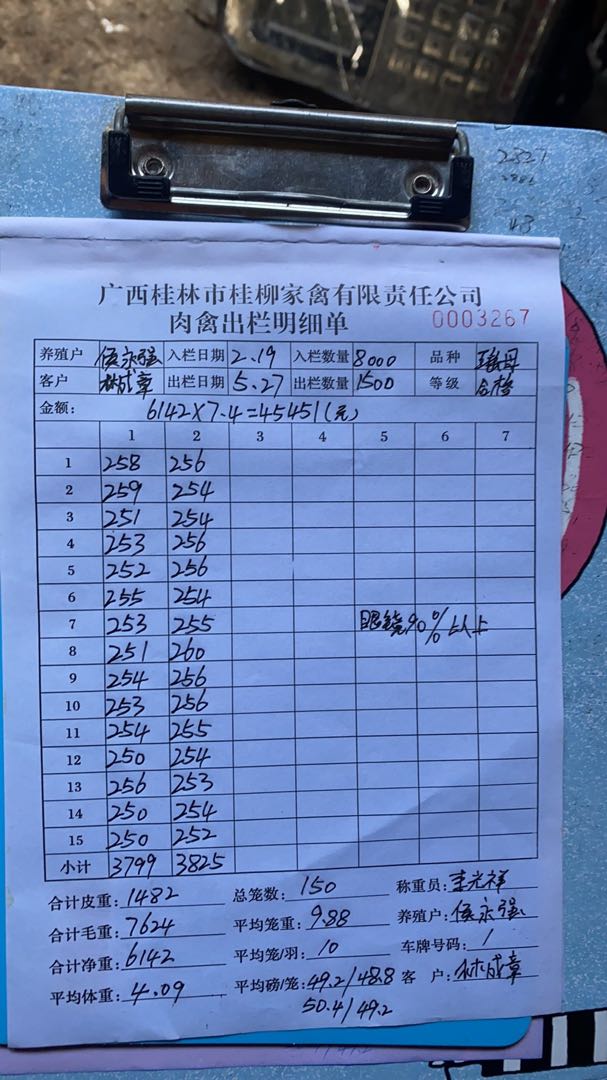 广西桂林市桂柳家禽有限责任公司
肉禽出栏明细单 0003267
养殖户 侯永强 入栏日期 2.19 入栏数量 8000 品种
客户 林成章 出栏日期 5.27 出栏数量 1500 等级 合格
金额: 6142×7.4=45451(元)
1 2 3 4 5 6 7
1 258 256
2 259 254
3 251 254
4 253 256
5 252 256
6 255 254
7 253 255 眼镜90%以上
8 251 260
9 254 256
10 253 256
11 254 255
12 250 254
13 256 253
14 250 254
15 250 252
小计 3799 3825
合计皮重: 1482 总笼数: 150 称重员: 李光祥
合计毛重: 7624 平均笼重: 9.88 养殖户: 侯永强
合计净重: 6142 平均笼/羽: 10 车牌号码: 1
平均体重: 4.09 平均磅/笼: 49.2/48.8 客户: 林成章
50.4/49.2